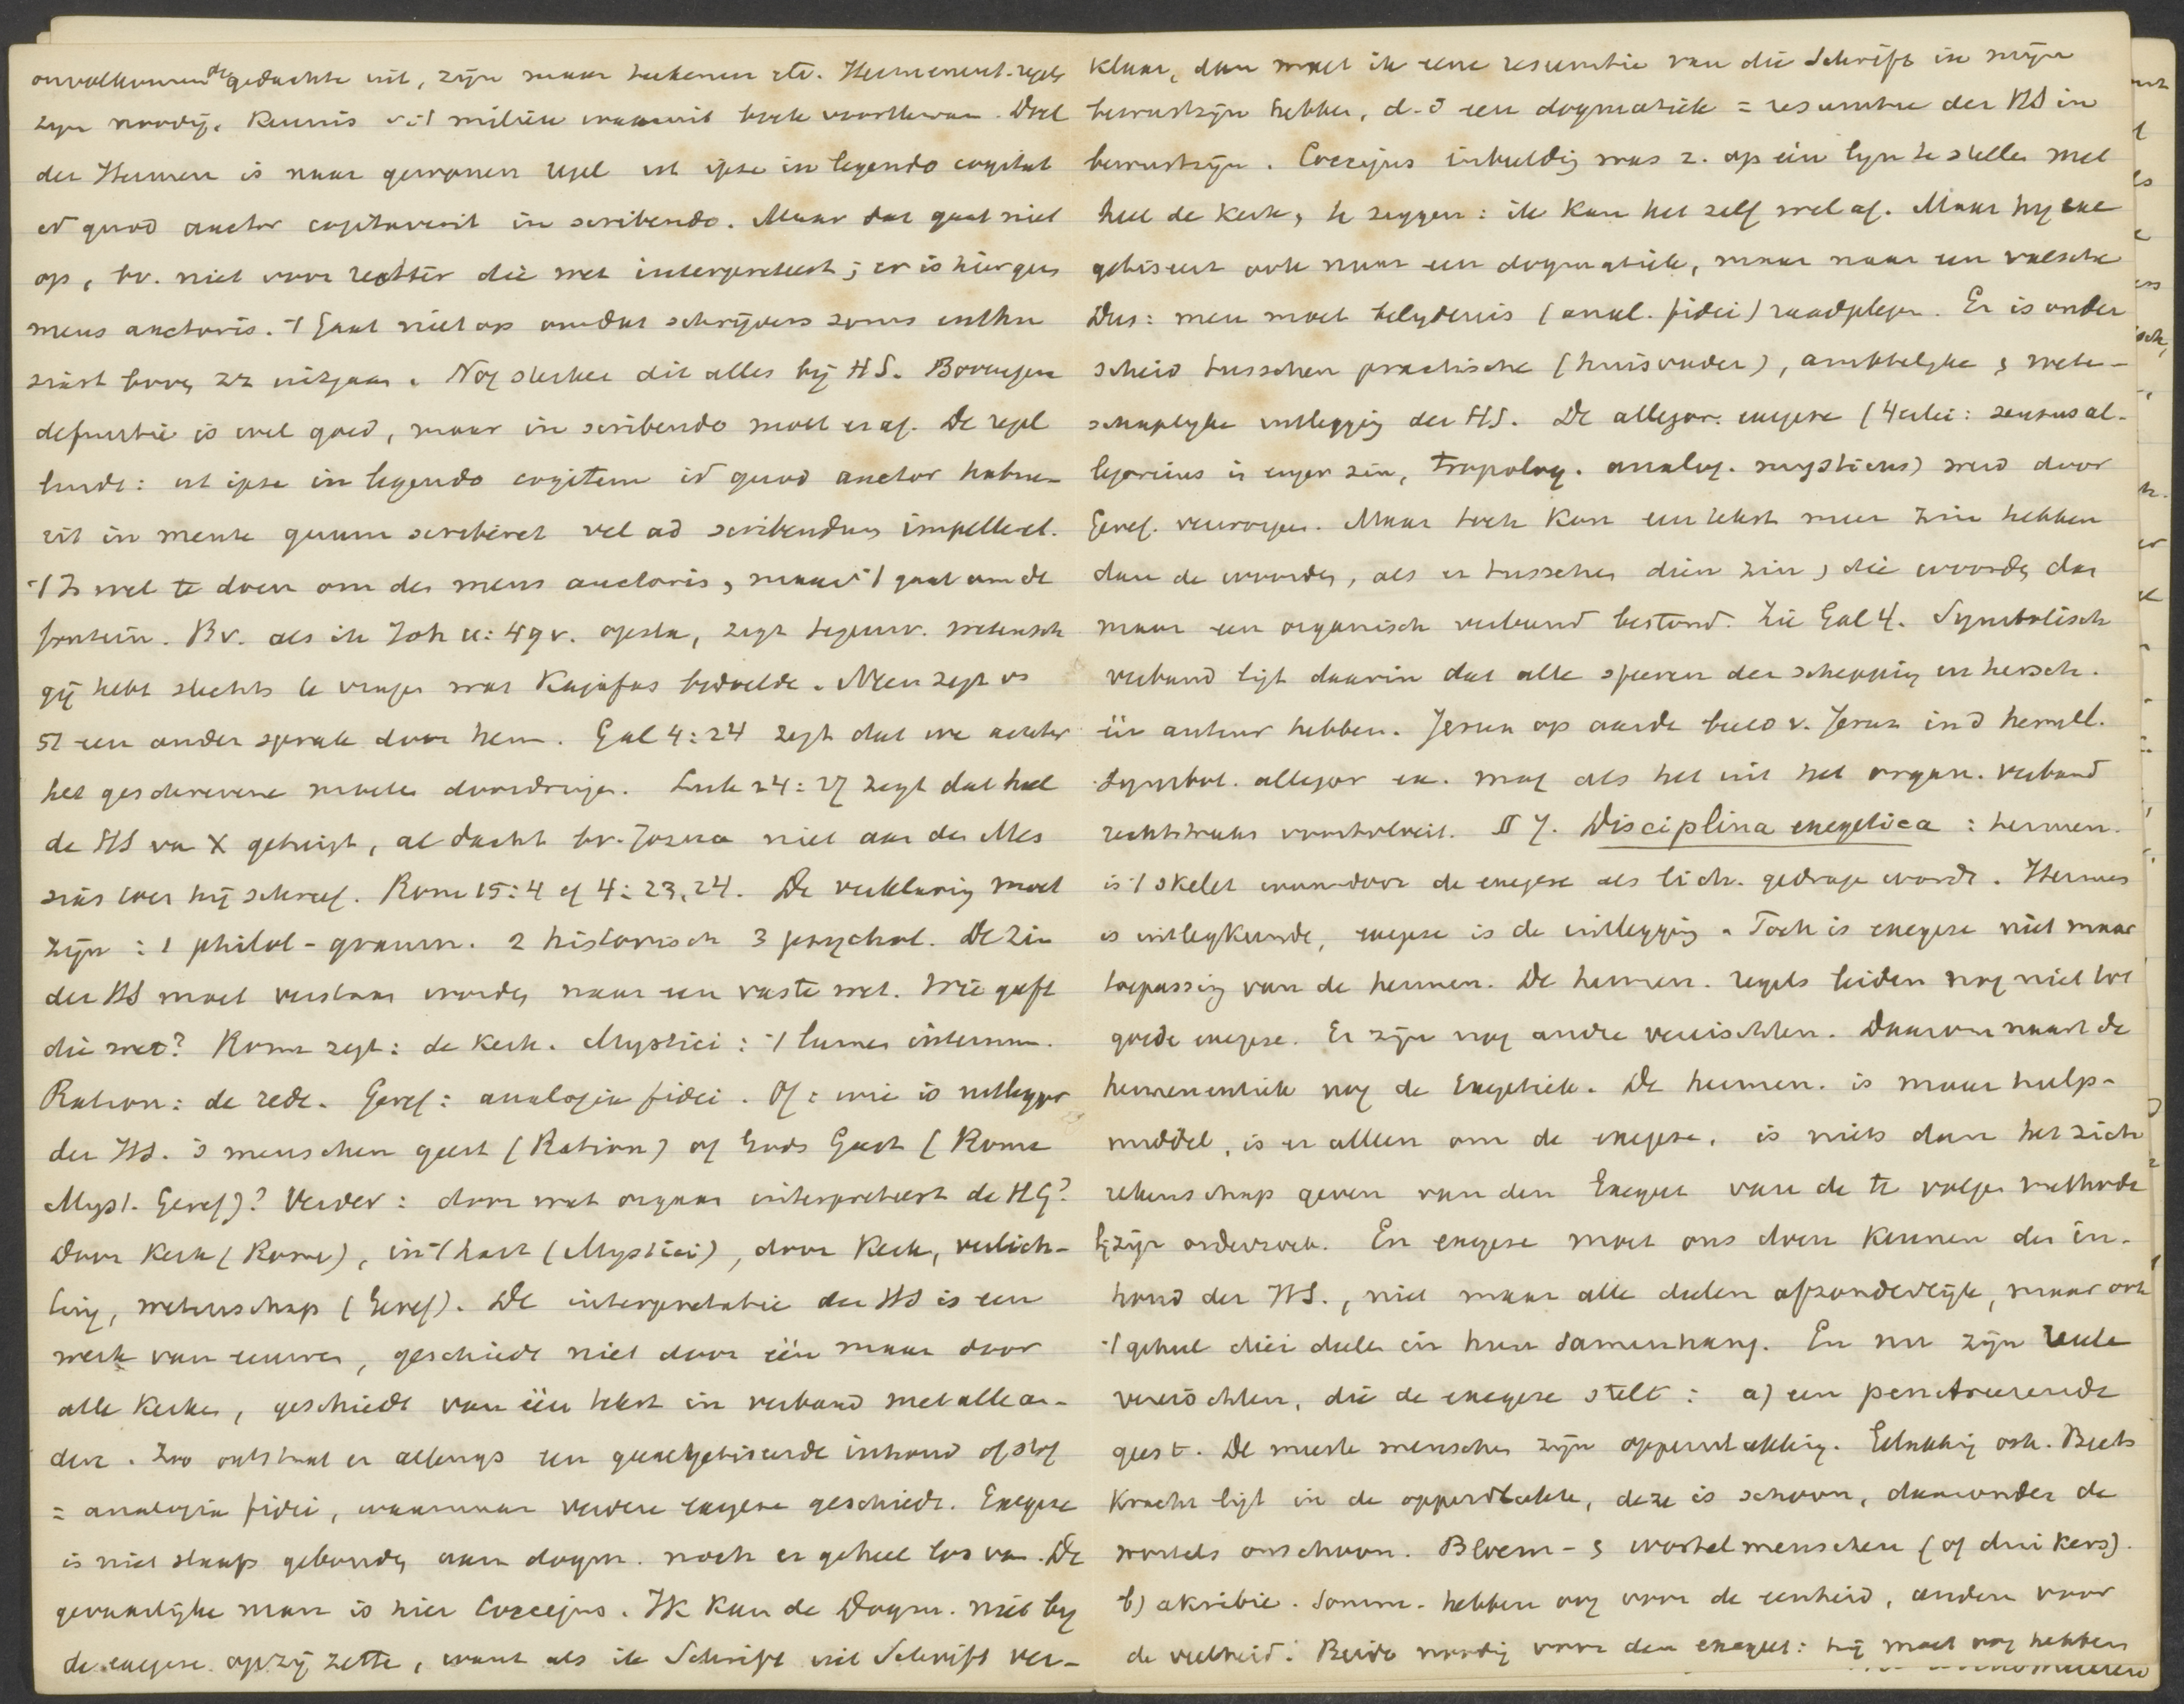 onvolkomen de gedachte uit, zijn maar teekenen etc. Hermeneut. regels
zijn noodig. Kennis v/d milieu waaruit boek voortkwam. Doel
der Hermen is naar gewonen regel ut ipse in legendo cogitet
id quod auctor cogitaverit in scribendo. Maar dat gaat niet
op, bv. niet voor rechter die wet interpreteert; er is hier geen
mens auctoris. 't Gaat niet op omdat schrijvers soms enthu
siast boven zz uitgaan. Nog sterker dit alles bij HS. Bovengen
definitie is wel goed, maar in scribendo moet eraf. De regel
luidt: ut ipse in legendo cogitem id quod auctor habue-
rit in mente quum scriberet vel ad scribendum impelleret.
't Is wel te doen om de mens auctoris, maar 't gaat om de
fontein. Bv. als ik Joh 11:49 v. opsla, zegt tegenw. wetensch
gij hebt slechts te vragen wat Kajafas bedoelde. Neen zegt vs
51 een ander sprak door hem. Gal 4:24 zegt dat we achter
het geschrevene moeten doordringen. Luk 24:27 zegt dat heel
de HS van X getuigt, al dacht bv. Jozua niet aan den Mes
sias toen hij schreef. Rom 15:4 of 4:23,24. De verklaring moet
zijn: 1 philol-gramm. 2 historisch 3 psychol. De zin
der HS moet verstaan worden naar een vaste wet. Wie geeft
die wet? Rome zegt: de kerk. Mystici: 't lumen internum.
Ration: de rede. Geref: analogia fidei. Of: wie is uitlegger
der HS. is menschen geest (Ration) of Gods Geest (Rome
Myst. Geref)? Verder: door wat orgaan interpreteert de HG?
Door kerk (Rome), in 't hart (Mystici), door kerk, verlich-
ting, wetenschap (Geref). De interpretatie der HS is een
werk van eeuwen, geschiedt niet door één maar door
alle kerken, geschiedt van één tekst in verband met alle an-
dere. Zoo ontstaat er allengs een geexegetiseerde inhoud of stof
= analogia fidei, waarnaar verdere exegese geschiedt. Exegese
is niet slaafs gebonden aan dogm. noch er geheel los van. De
gevaarlijke man is hier Coccejus. Ik kan de Dogm. niet bij
de exegese opzij zetten, want als ik Schrift uit Schrift ver-
klaar, dan moet ik eene resumtie van die Schrift in mijn
bewustzijn hebben, d.i een dogmatiek = resumtie der HS in
bewustzijn. Coccejus inbeelding was z. op één lijn te stellen met
heel de kerk, te zeggen: ik kan het zelf wel af. Maar hij exe
getiseert ook naar een dogmatiek, maar naar een valsche
Dus: men moet belijdenis (anal. fidei) raadplegen. Er is onder
scheid tusschen practische (huisvader), ambtelijke & weten-
schaplijke uitlegging der HS. De allegor. exegese (4erlei: sensus al-
legoricus in enger zin, tropolog. analog. mysticus) werd door
Geref. verworpen. Maar toch kan een tekst meer zin hebben
dan de woorden, als er tusschen dien zin & die woorden dan
maar een organisch verband bestond. Zie Gal 4. Symbolisch
verband ligt daarin dat alle sferen der schepping en hersch.
één auteur hebben. Jeruz op aarde beeld v. Jeruz in d hemel.
Symbol. allegor ex. mag als het uit het organ. verband
rechtstreeks voortvloeit. II 7. Disciplina exegetica: hermen.
is 't skelet waardoor de exegese als lich. gedragen wordt. Hermen
is uitlegkunde, exegese is de uitlegging. Toch is exegese niet maar
toepassing van de hermen. De hermen. regels leiden nog niet tot
goede exegese. Er zijn nog andre vereischten. Daarom naast de
hermeneutiek nog de Exegetiek. De hermen. is maar hulp-
middel, is er alleen om de exegese, is niets dan het zich
rekenschap geven van den Exegeet van de te volgen methode
bij zijn onderzoek. En exegese moet ons doen kennen den in-
houd der HS., niet maar alle deelen afzonderlijk, maar ook
't geheel dier deelen in hun samenhang. En nu zijn vele
vereischten, die de exegese stelt: a) een penetreerende
geest. De meeste menschen zijn oppervlakkig. Beets
kracht ligt in de oppervlakte, deze is schoon, daaronder de
wortels onschoon. Bloem- & wortelmenschen (of duikers).
b) akribie. Somm. hebben oog voor de eenheid, anderen voor
de veelheid. Beide noodig voor den exegeet: hij moet oog hebben